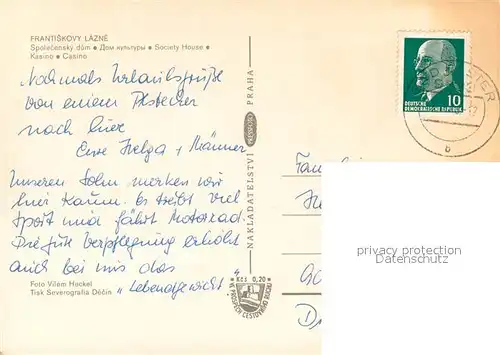 FRANTIŠKOVY LÁZNĚ
Společenský dům • Дом культуры • Society House •
Kasino • Casino
Nochmals Urlaubsgrüße
von einem Abstecher
nach hier
Eure Helga + Männer
Unseren Sohn merken wir
hier kaum. Er treibt viel
Sport und fährt Motorrad.
Die gute Verpflegung erhöht
auch bei uns das
„Lebendgewicht"
Foto Vilém Heckel
Tisk Severografia Děčín
NAKLADATELSTVÍ PRESSFOTO PRAHA
Kčs 0,20
VE PROSPĚCH CESTOVNÍHO RUCHU
DEUTSCHE
DEMOKRATISCHE REPUBLIK
10
b
Fam
privacy protection
Datenschutz